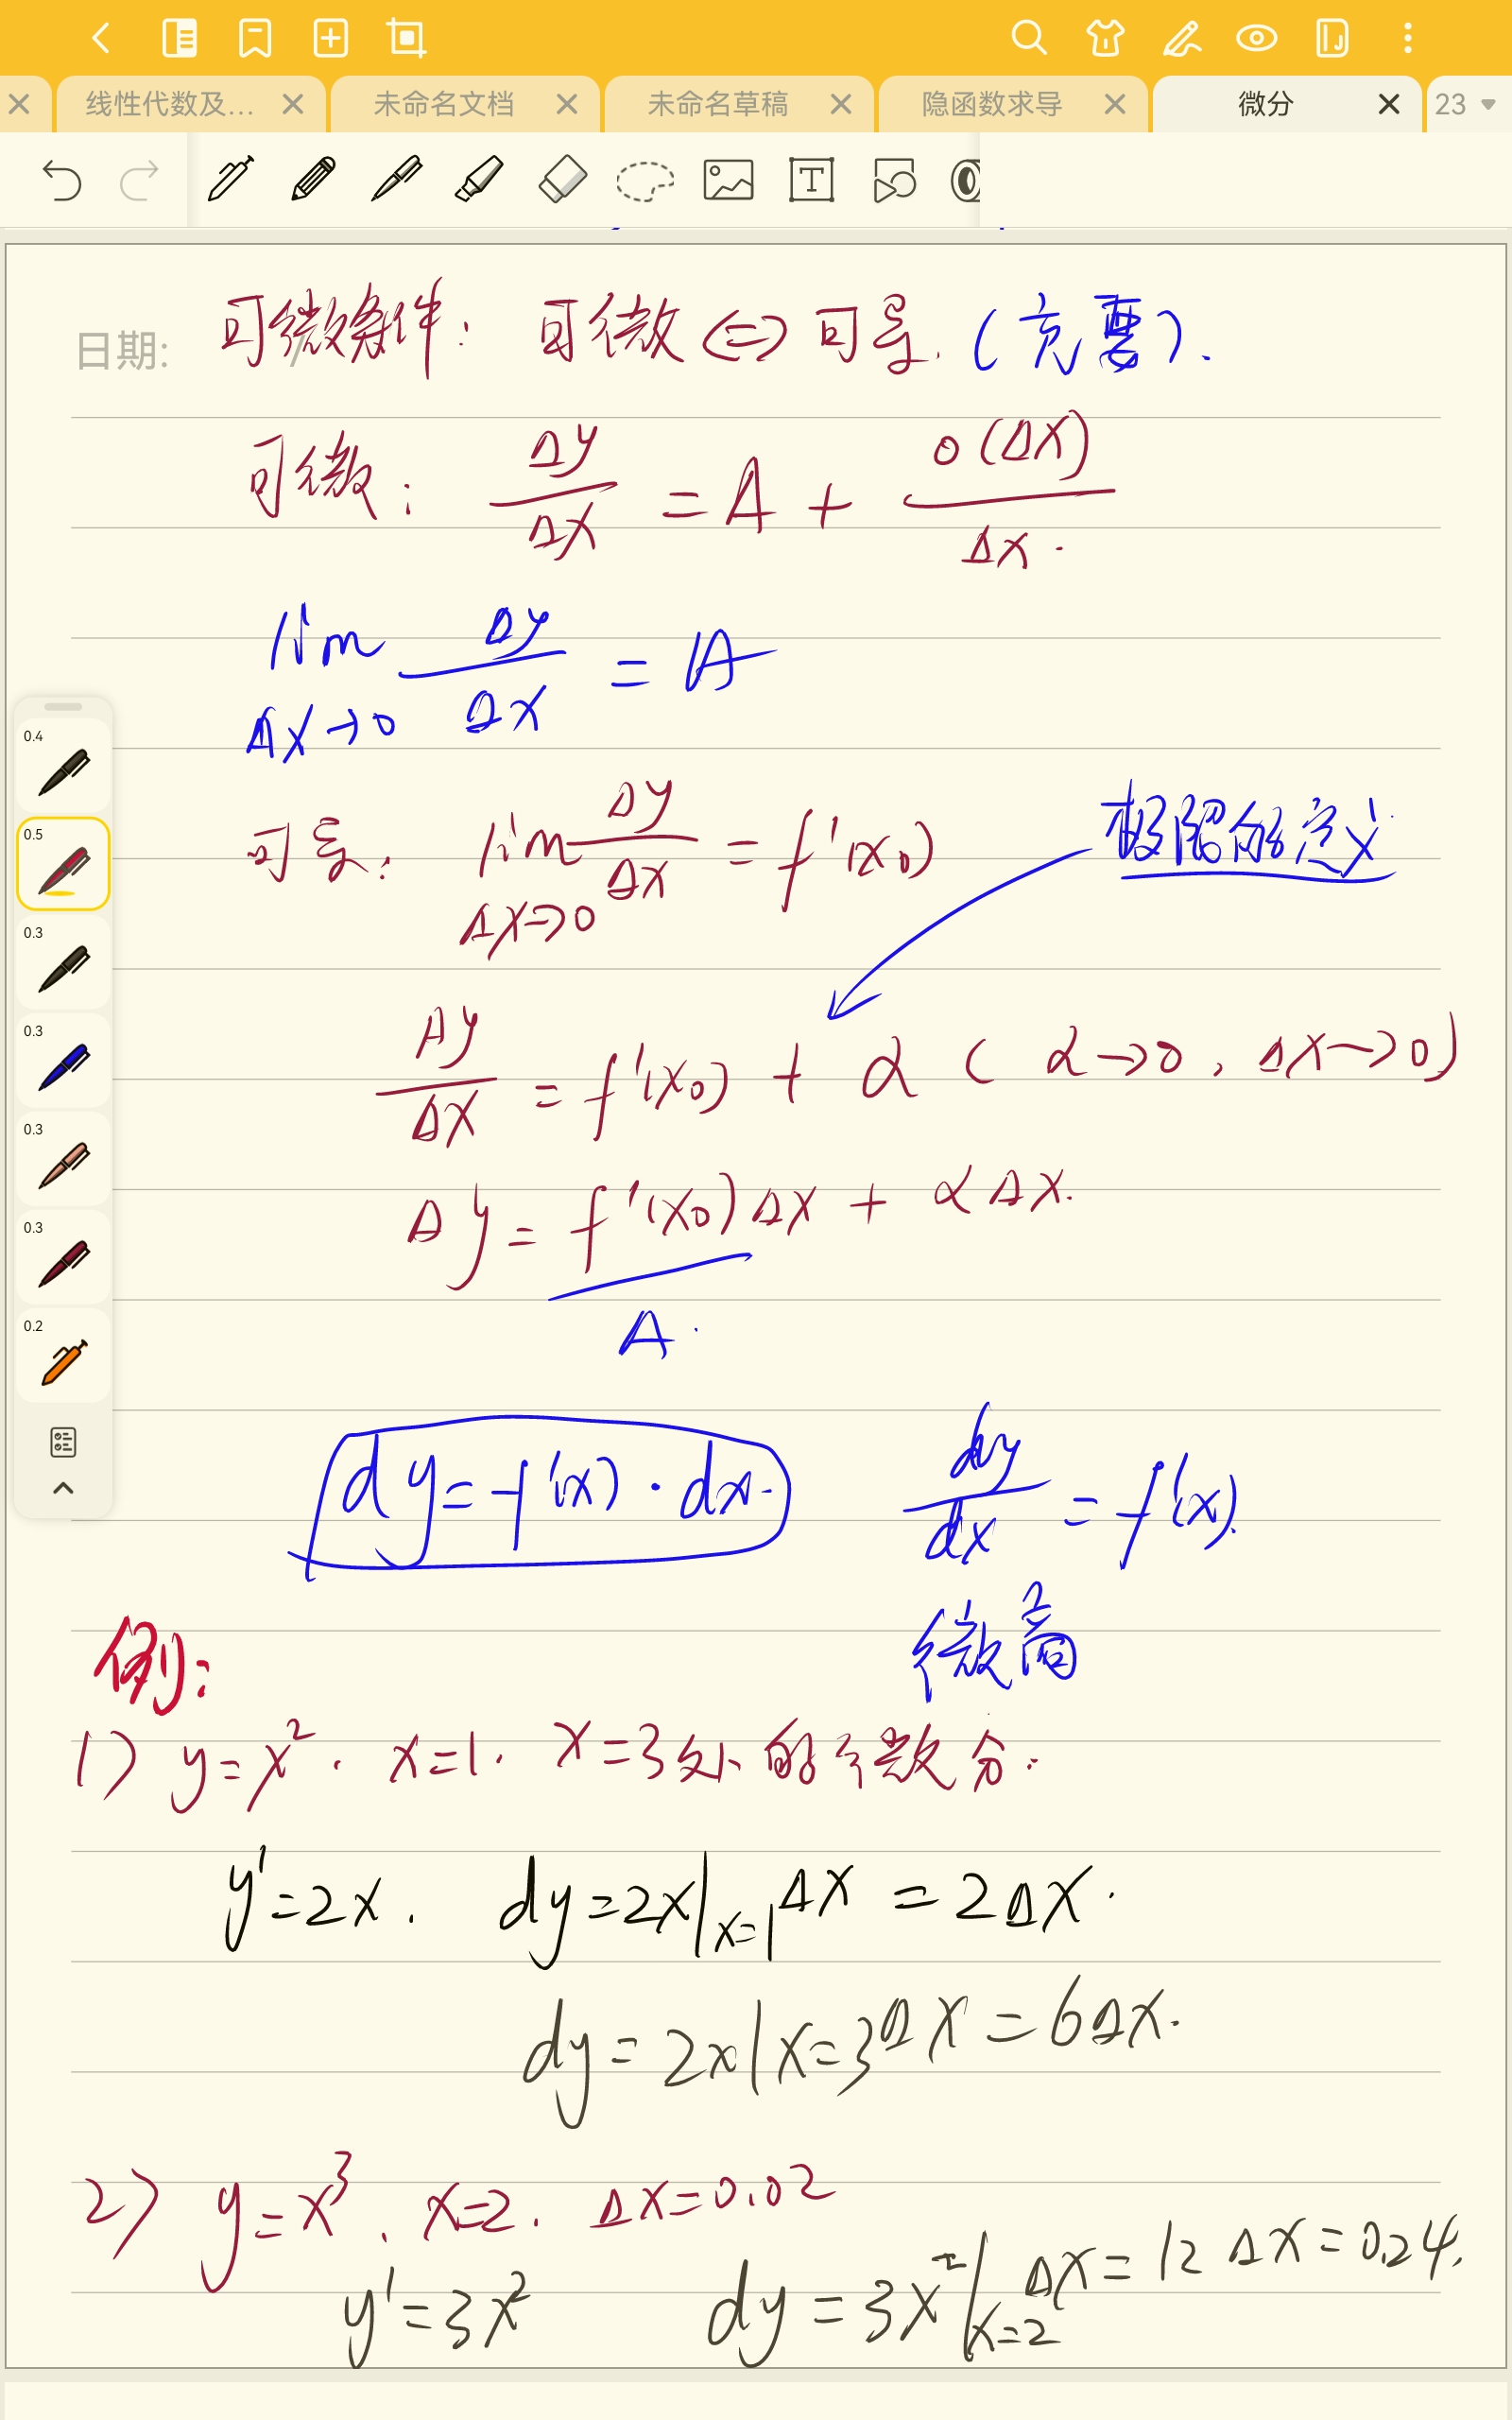 线性代数及... 未命名文档 未命名草稿 隐函数求导 微分 23
日期: 可微条件: 可微 <=> 可导. (充要).
可微: Δy/Δx = A + o(Δx)/Δx.
lim Δx→0 Δy/Δx = A
可导: lim Δx→0 Δy/Δx = f'(x₀) 极限的定义
Δy/Δx = f'(x₀) + α ( α→0, Δx→0)
Δy = f'(x₀)Δx + αΔx.
A.
dy = f'(x)·dx. dy/dx = f'(x).
微商
例:
1) y=x². x=1. x=3处的微分.
y'=2x. dy=2x|x=1 Δx = 2Δx.
dy=2x|x=3 Δx = 6Δx.
2) y=x³. x=2. Δx=0.02
y'=3x² dy=3x²|x=2 Δx = 12Δx=0.24.
0.4
0.5
0.3
0.3
0.3
0.3
0.2